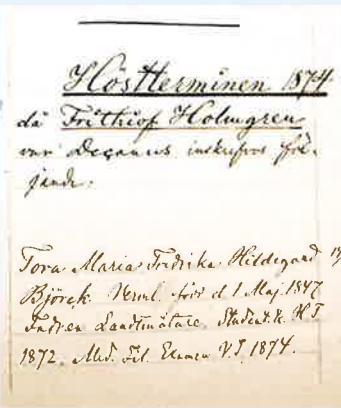 Höstterminen 1874
då Frithiof Holmgren
var Decanus inskrefvos föl-
jande:
Tora Maria Fredrika Hildegard
Björck. Verml. född d 1 Maj 1847
Fadren Landtmätare. Student. k. HT
1872. Med. Fil. Examen V.T. 1874.